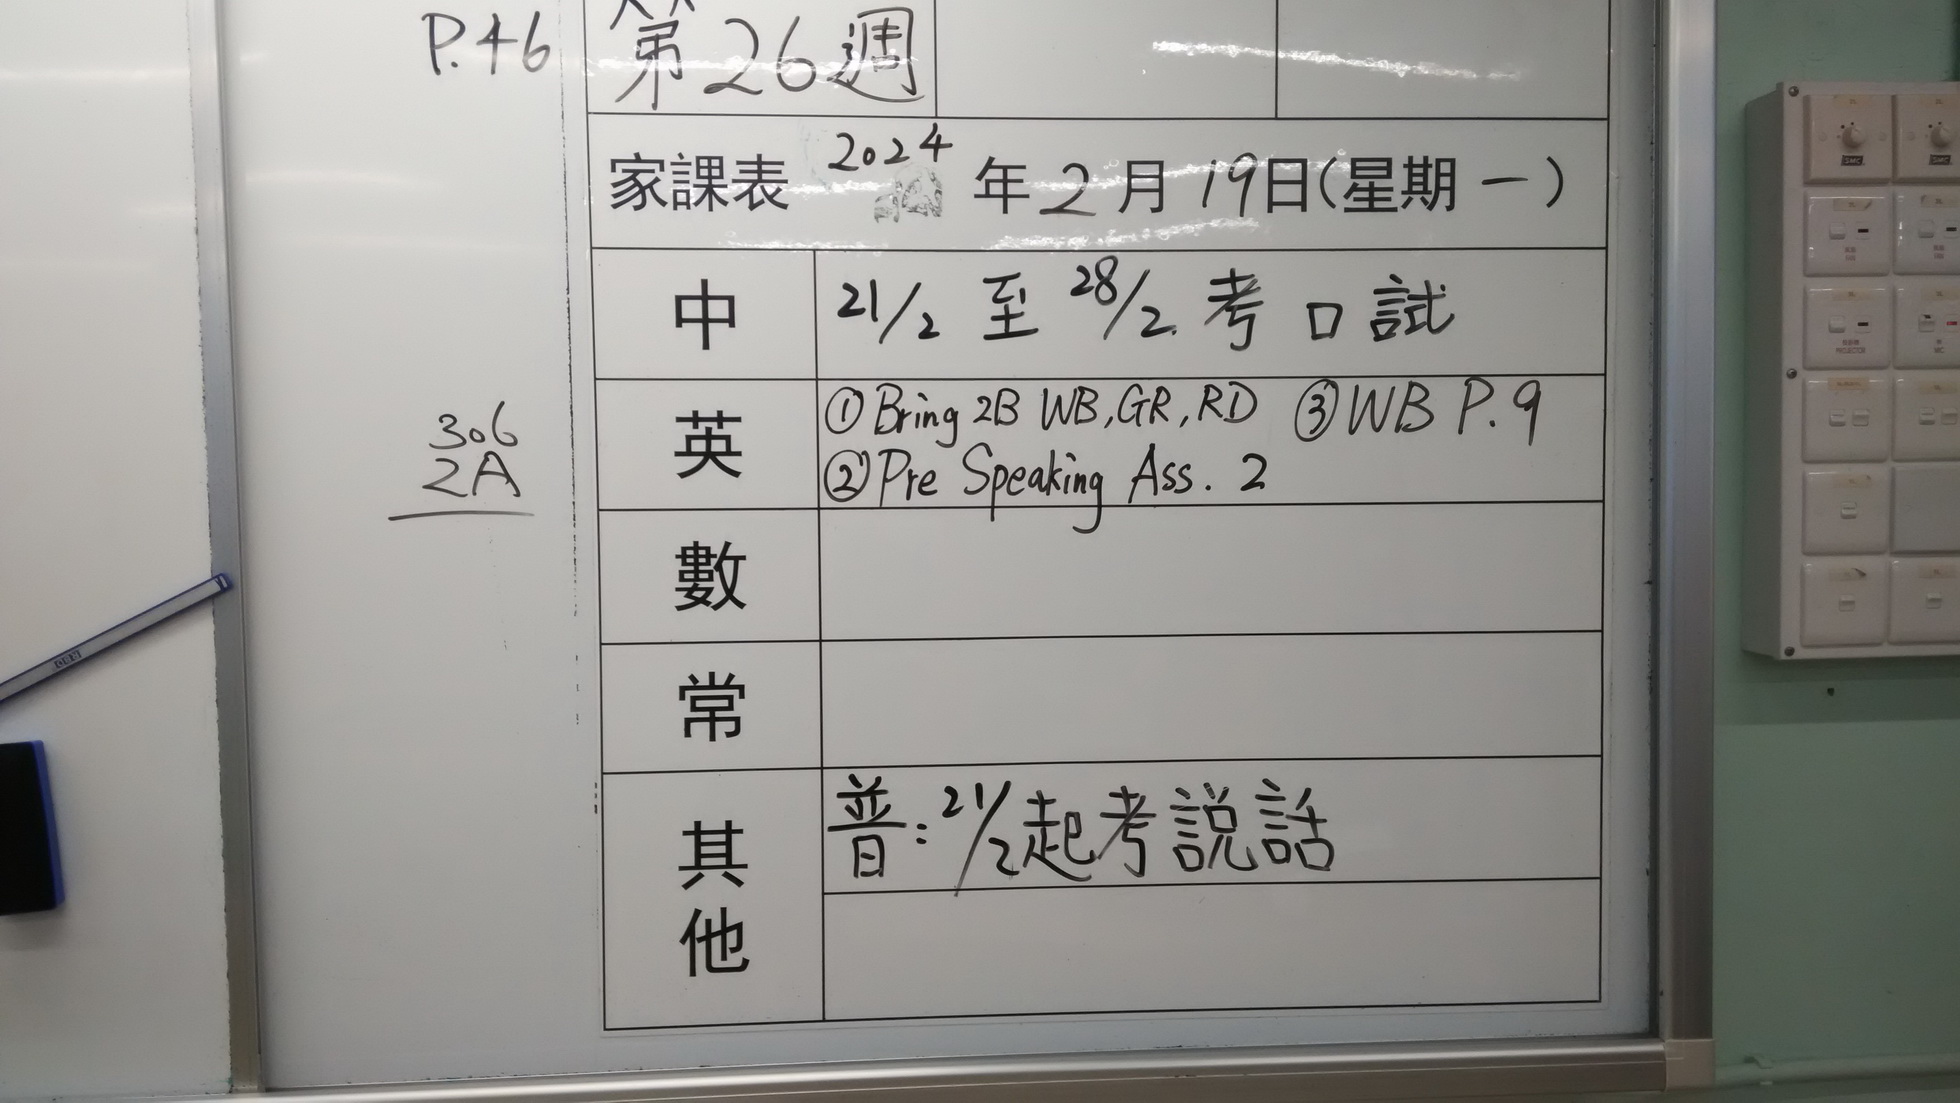 P.46
第26週
家課表 2024 年 2 月 19日(星期 一 )
中 21/2 至 28/2 考口試
英 ①Bring 2B WB,GR,RD ③WB P.9
②Pre Speaking Ass. 2
306
2A
數
常
其他 普:21/2起考説話